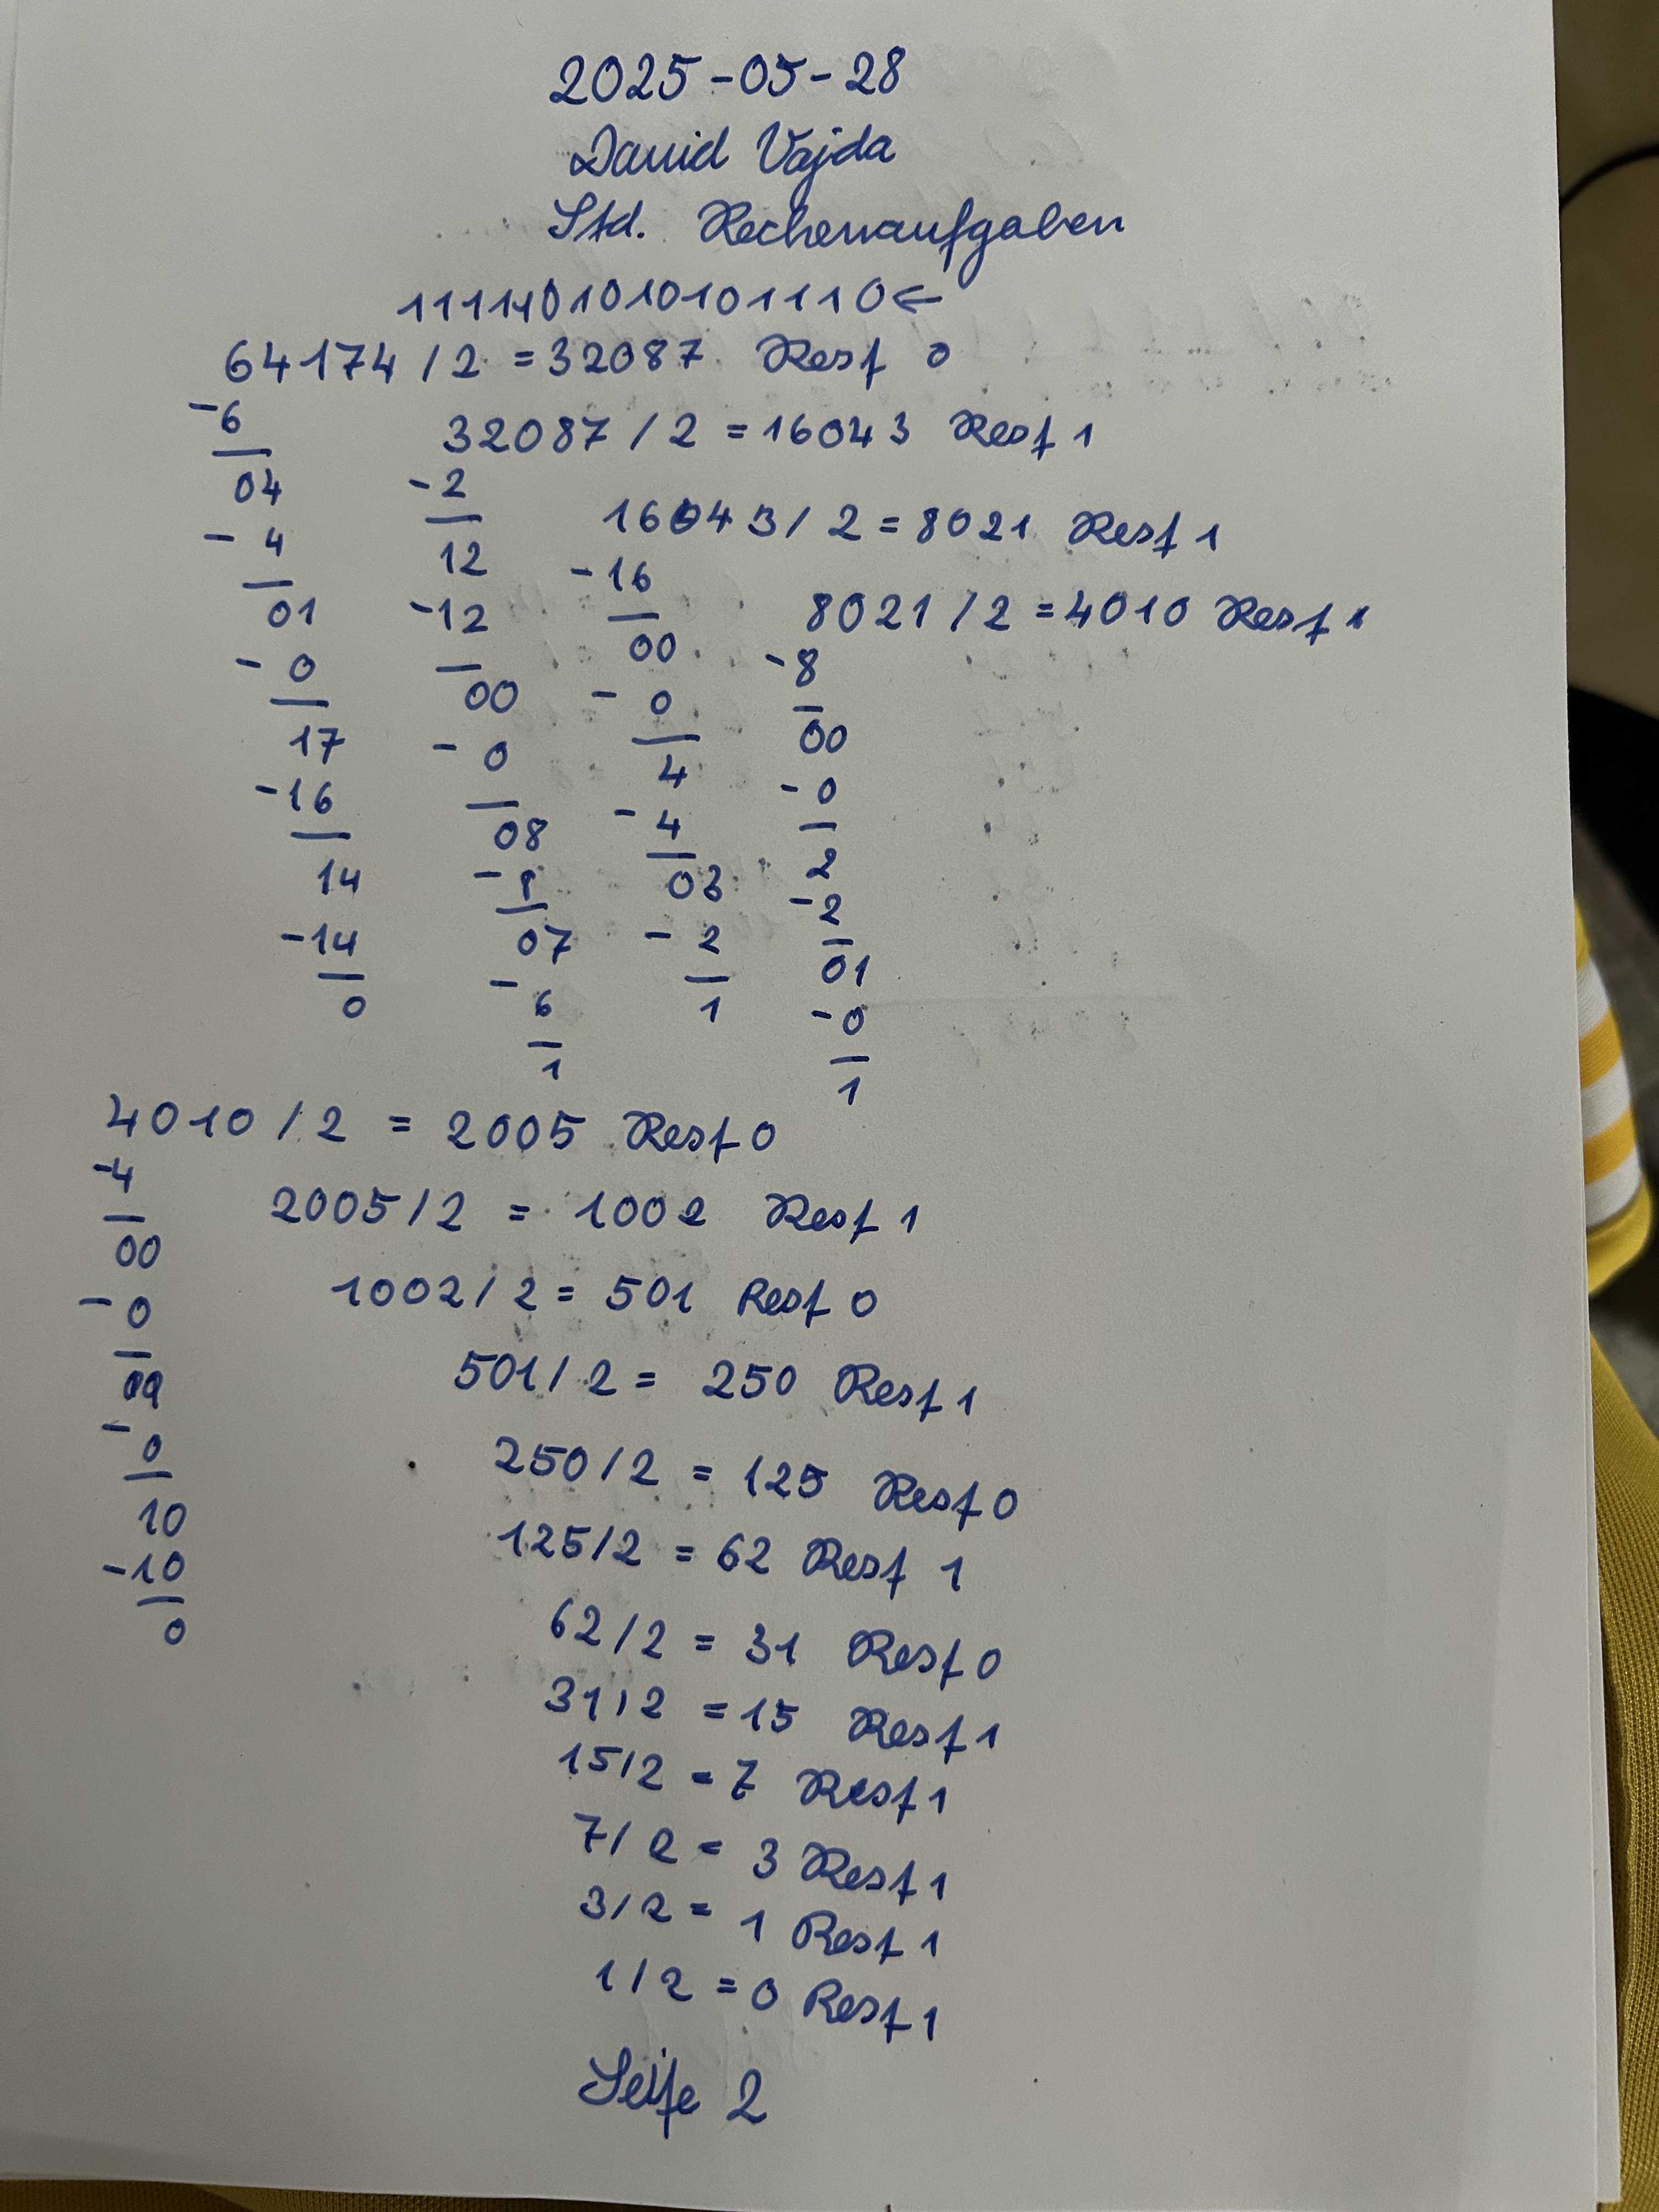 2025-05-28
David Vajda
Std. Rechenaufgaben
1111101010101110←
64174 / 2 = 32087 Rest 0
-6
04
- 4
01
- 0
17
-16
14
-14
0
32087 / 2 = 16043 Rest 1
-2
12
-12
00
- 0
08
- 8
07
- 6
1
16043 / 2 = 8021 Rest 1
-16
00
- 0
4
- 4
03
- 2
1
8021 / 2 = 4010 Rest 1
-8
00
-0
2
-2
01
-0
1
4010 / 2 = 2005 Rest 0
-4
00
- 0
- 0
10
-10
0
2005 / 2 = 1002 Rest 1
1002 / 2 = 501 Rest 0
501 / 2 = 250 Rest 1
250 / 2 = 125 Rest 0
125 / 2 = 62 Rest 1
62 / 2 = 31 Rest 0
31 / 2 = 15 Rest 1
15 / 2 = 7 Rest 1
7 / 2 = 3 Rest 1
3 / 2 = 1 Rest 1
1 / 2 = 0 Rest 1
Seite 2